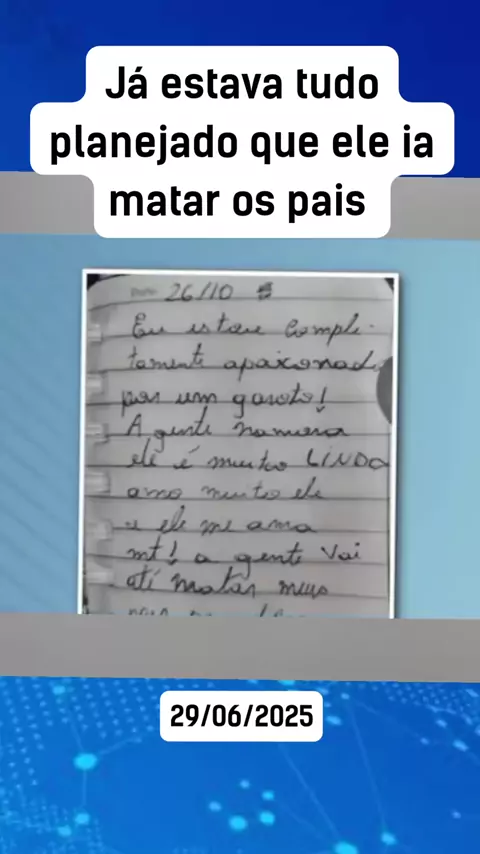 Já estava tudo
planejado que ele ia
matar os pais
26/10
Eu estou comple-
tamente apaixonada
por um garoto!
A gente namora
ele é muito LINDO
amo muito ele
e ele me ama
mt! a gente vai
até matar meus
29/06/2025